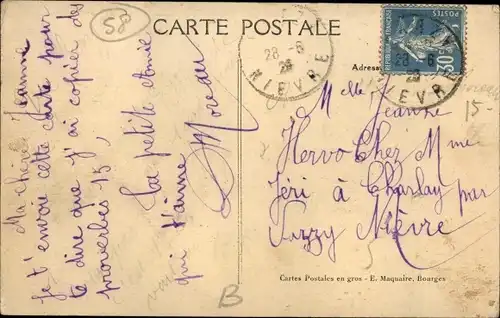 58
CARTE POSTALE
Ma chère Jeanne
Je t'envoie cette carte pour
te dire que j'ai copier des
proverbes 15,
la petite Amie
qui t'aime
Moreau
28 - 6
NIEVRE
POSTES
REPUBLIQUE FRANÇAISE
30
28 - 6
NIEVRE
Adresse
Melle Jeanne
15-
Hervo Chez Mme
Jéri à Charlay par
Varzy Nièvre
Cartes Postales en gros - E. Maquaire, Bourges
B